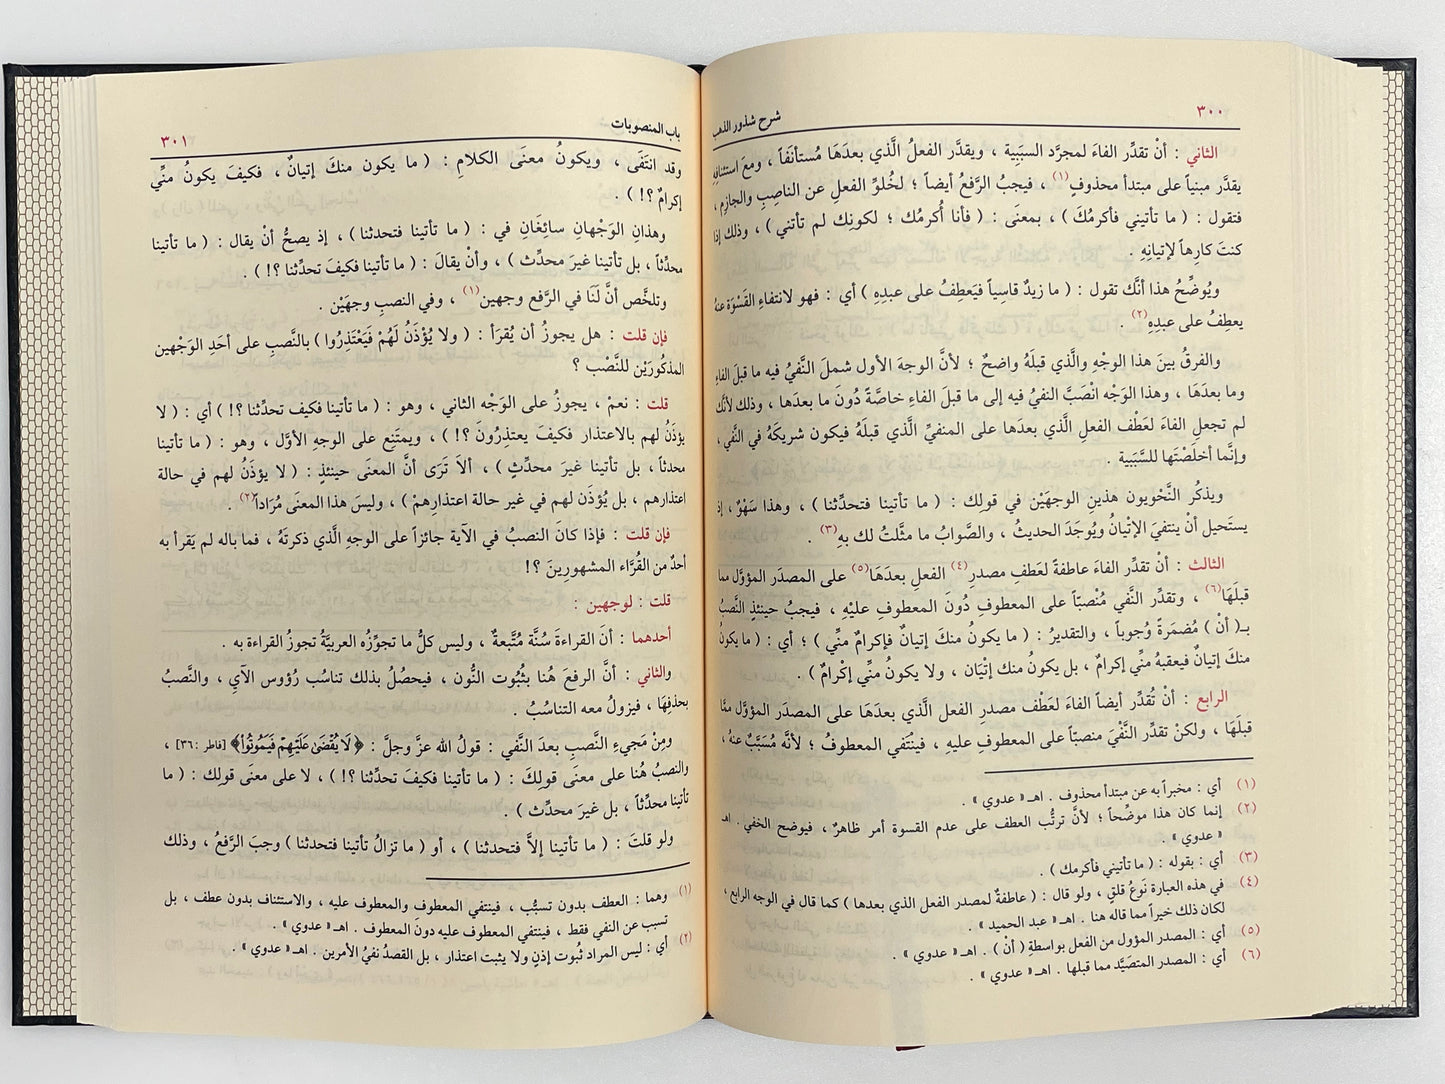 ٣٠٠
شرح شذور الذهب
الثاني : أنْ تقدِّر الفاءَ لمجرَّد السببِية ، ويقدَّر الفعلُ الَّذي بعدَهَا مُستأنَفَاً ، ومعَ استئنافِهِ
يقدَّر مبنياً على مبتدأ محذوفٍ(١) ، فيجبُ الرَّفعُ أيضاً ؛ لخُلوِّ الفعلِ عن الناصِبِ والجازِمِ ،
فتقول : ( ما تأتيني فأكرمُكَ ) ، بمعنَى : ( فأنا أُكرمُك ؛ لكونِك لم تأتني ) ، وذلك إذا
كنتَ كارِهاً لإتيانِهِ .
ويُوضِّحُ هذا أنَّك تقول : ( ما زيدٌ قاسِياً فيَعطِفُ على عبدِهِ ) أي : فهو لانتفاءِ القَسْوَة عنهُ
يعطِفُ على عبدِهِ(٢) .
والفرقُ بينَ هذا الوَجْهِ والَّذي قبلَهُ واضحٌ ؛ لأنَّ الوجهَ الأول شملَ النَّفيُ فيه ما قبلَ الفاءِ
وما بعدَهَا ، وهذا الوَجْه انْصَبَّ النفيُ فيه إلى ما قبلَ الفاءِ خاصَّةً دُونَ ما بعدَها ، وذلك لأنَّك
لم تجعلِ الفاءَ لعَطْف الفعلِ الَّذي بعدَها على المنفيِّ الَّذي قبلَهُ فيكون شريكَهُ في النَّفي ،
وإنَّما أخلَصْتَها للسَّبَبية .
ويذكُر النَّحْويون هذينِ الوجهَيْن في قولك : ( ما تأتينا فتحدِّثنا ) ، وهذا سَهْوٌ ، إذ
يستَحيل أنْ ينتفيَ الإتْيانُ ويُوجَدَ الحديثُ ، والصَّوابُ ما مثَّلتُ لك بهِ(٣) .
الثالث : أنْ تقدِّر الفاءَ عاطفةً لعَطفِ مصدرِ(٤) الفعلِ بعدَهَا(٥) على المصدَر المؤوَّل مما
قبلَهَا(٦) ، وتقدِّر النَّفي مُنْصبّاً على المعطوفِ دُونَ المعطوفِ عليْهِ ، فيجبُ حينئذٍ النَّصبُ
بـ( أنْ ) مُضمَرَةً وُجوباً ، والتقديرُ : ( ما يكونُ منكَ إتيانٌ فإكرامٌ منِّي ) ؛ أي : ( ما يكونُ
منكَ إتيانٌ فيعقبهُ منِّي إكرامٌ ، بل يكونُ منك إتْيَان ، ولا يكونُ منِّي إكْرامٌ ) .
الرابع : أنْ تُقدِّر أيضاً الفاءَ لعَطْف مصدرِ الفعل الَّذي بعدَهَا على المصدَر المؤوَّل ممَّا
قبلَهَا ، ولكنْ تقدِّر النَّفْيَ منصبّاً على المعطوفِ عليهِ ، فينتَفي المعطوفُ ؛ لأنَّه مُسَبَّبٌ عنهُ ،
(١) أي : مخبراً به عن مبتدأ محذوف . اهـ « عدوي » .
(٢) إنما كان هذا موضِّحاً ؛ لأنَّ ترتُّب العطف على عدم القسوة أمر ظاهرٌ ، فيوضح الخفي . اهـ
« عدوي » .
(٣) أي : بقوله : ( ما تأتيني فأكرمك ) .
(٤) في هذه العبارة نَوعُ قلقٍ ، ولو قال : ( عاطفةً لمصدر الفعل الذي بعدها ) كما قال في الوجه الرابع ،
لكان ذلك خيراً مما قاله هنا . اهـ « عبد الحميد » .
(٥) أي : المصدر المؤول من الفعل بواسطةِ ( أنْ ) . اهـ « عدوي » .
(٦) أي : المصدر المتصيَّد مما قبلها . اهـ « عدوي » .
باب المنصوبات
٣٠١
وقد انْتَفَى ، ويكونُ معنَى الكلامِ : ( ما يكون منكَ إتيانٌ ، فكيفَ يكونُ منِّي
إكرامٌ ؟! ) .
وهذانِ الوَجْهانِ سائِغَانِ في : ( ما تأتينا فتحدثنا ) ، إذ يصحُّ أنْ يقال : ( ما تأتينا
محدِّثاً ، بل تأتينا غيرَ محدِّث ) ، وأنْ يقالَ : ( ما تأتينا فكيفَ تحدِّثنا ؟! ) .
وتلخَّص أنَّ لَنَا في الرَّفع وجهين(١) ، وفي النصبِ وجهَيْن .
فإن قلت : هل يجوزُ أن يُقرَأ : ( ولا يُؤْذَنُ لَهُمْ فَيَعْتَذِرُوا ) بالنَّصبِ على أحَدِ الوَجْهين
المذكورَيْن للنَّصْب ؟
قلت : نعمْ ، يجوزُ على الوَجْه الثاني ، وهو : ( ما تأتينا فكيف تحدِّثنا ؟! ) أي : ( لا
يؤذَنُ لهم بالاعتذار فكيفَ يعتذِرُونَ ؟! ) ، ويمتَنِع على الوجهِ الأوَّل ، وهو : ( ما تأتينا
محدثاً ، بل تأتينا غيرَ محدِّثٍ ) ، ألاَ تَرَى أنَّ المعنَى حينئذٍ : ( لا يؤذَنُ لهم في حالة
اعتذارهم ، بل يُؤْذَن لهم في غير حالة اعتذارهمْ ) ، وليسَ هذا المعنَى مُرَاداً(٢) .
فإن قلت : فإذا كانَ النصبُ في الآية جائزاً على الوجهِ الَّذي ذكرتَهُ ، فما باله لم يَقرأ به
أحدٌ من القُرَّاء المشهورِينَ ؟!
قلت : لوجهين :
أحدهما : أنَ القراءةَ سُنَّة مُتَّبعةٌ ، وليس كلُّ ما تجوِّزُه العربيَّةُ تجوزُ القراءة به .
والثاني : أنَّ الرفعَ هُنا بثُبُوت النُّون ، فيحصُلُ بذلك تناسُب رُؤوس الآيِ ، والنَّصبُ
بحذفِهَا ، فيزولُ معه التناسُبُ
ومِنْ مَجيءِ النَّصبِ بعدَ النَّفي : قولُ اللهِ عزَّ وجلَّ : ﴿ لَا يُقْضَىٰ عَلَيْهِمْ فَيَمُوتُوا۟ ﴾ [فاطر :٣٦] ،
والنصبُ هُنا على معنَى قولِكَ : ( ما تأتينا فكيفَ تحدِّثنا ؟! ) ، لا على معنَى قولِك : ( ما
تأتينا محدِّثاً ، بل غيرَ محدِّث ) .
ولو قلتَ : ( ما تأتينا إلاَّ فتحدثنا ) ، أو ( ما تزالُ تأتينا فتحدثنا ) وجبَ الرَّفعُ ، وذلك
(١) وهما : العطف بدون تسبُّب ، فينتفي المعطوف والمعطوف عليه ، والاستئناف بدون عطف ، بل
تسبب عن النفي فقط ، فينتفي المعطوف عليه دونَ المعطوف . اهـ « عدوي » .
(٢) أي : ليس المراد ثُبوت إذنٍ ولا يثبت اعتذار ، بل القصدُ نفيُ الأمرين . اهـ « عدوي » .